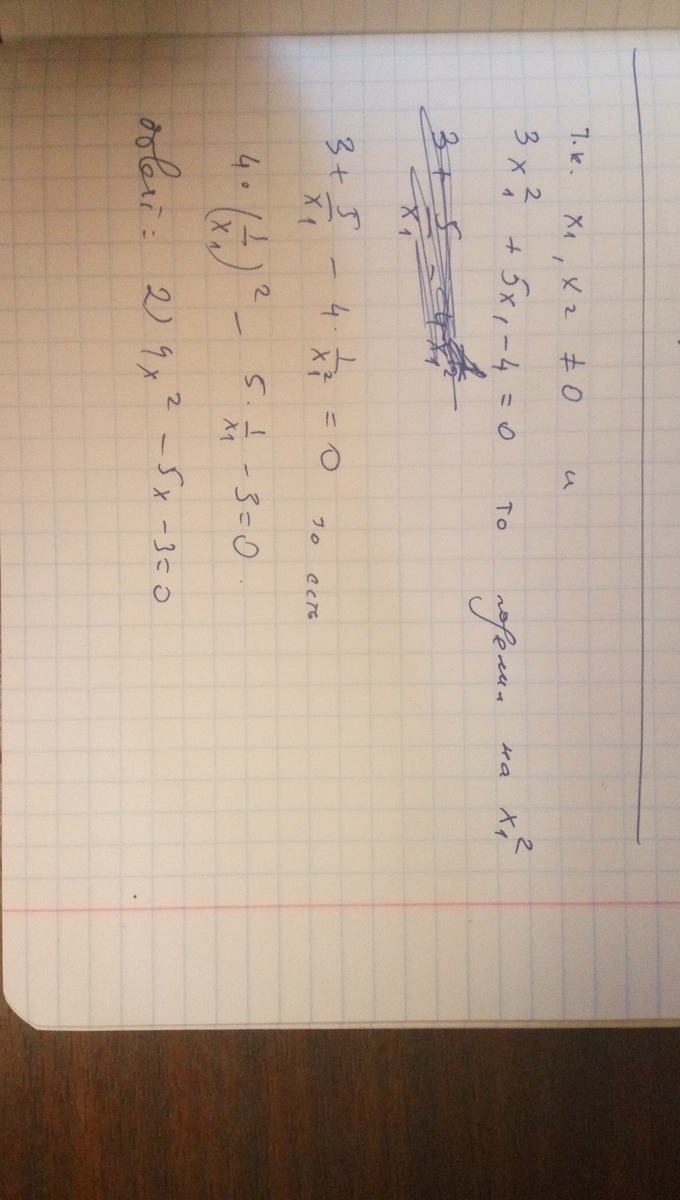 т.к. x₁, x₂ ≠ 0 и
3x₁² + 5x₁ - 4 = 0 то поделим на x₁²
3 + 5/x₁ - 4 · 1/x₁² = 0 то есть
4 · (1/x₁)² - 5 · 1/x₁ - 3 = 0
ответ: 2) 4x² - 5x - 3 = 0